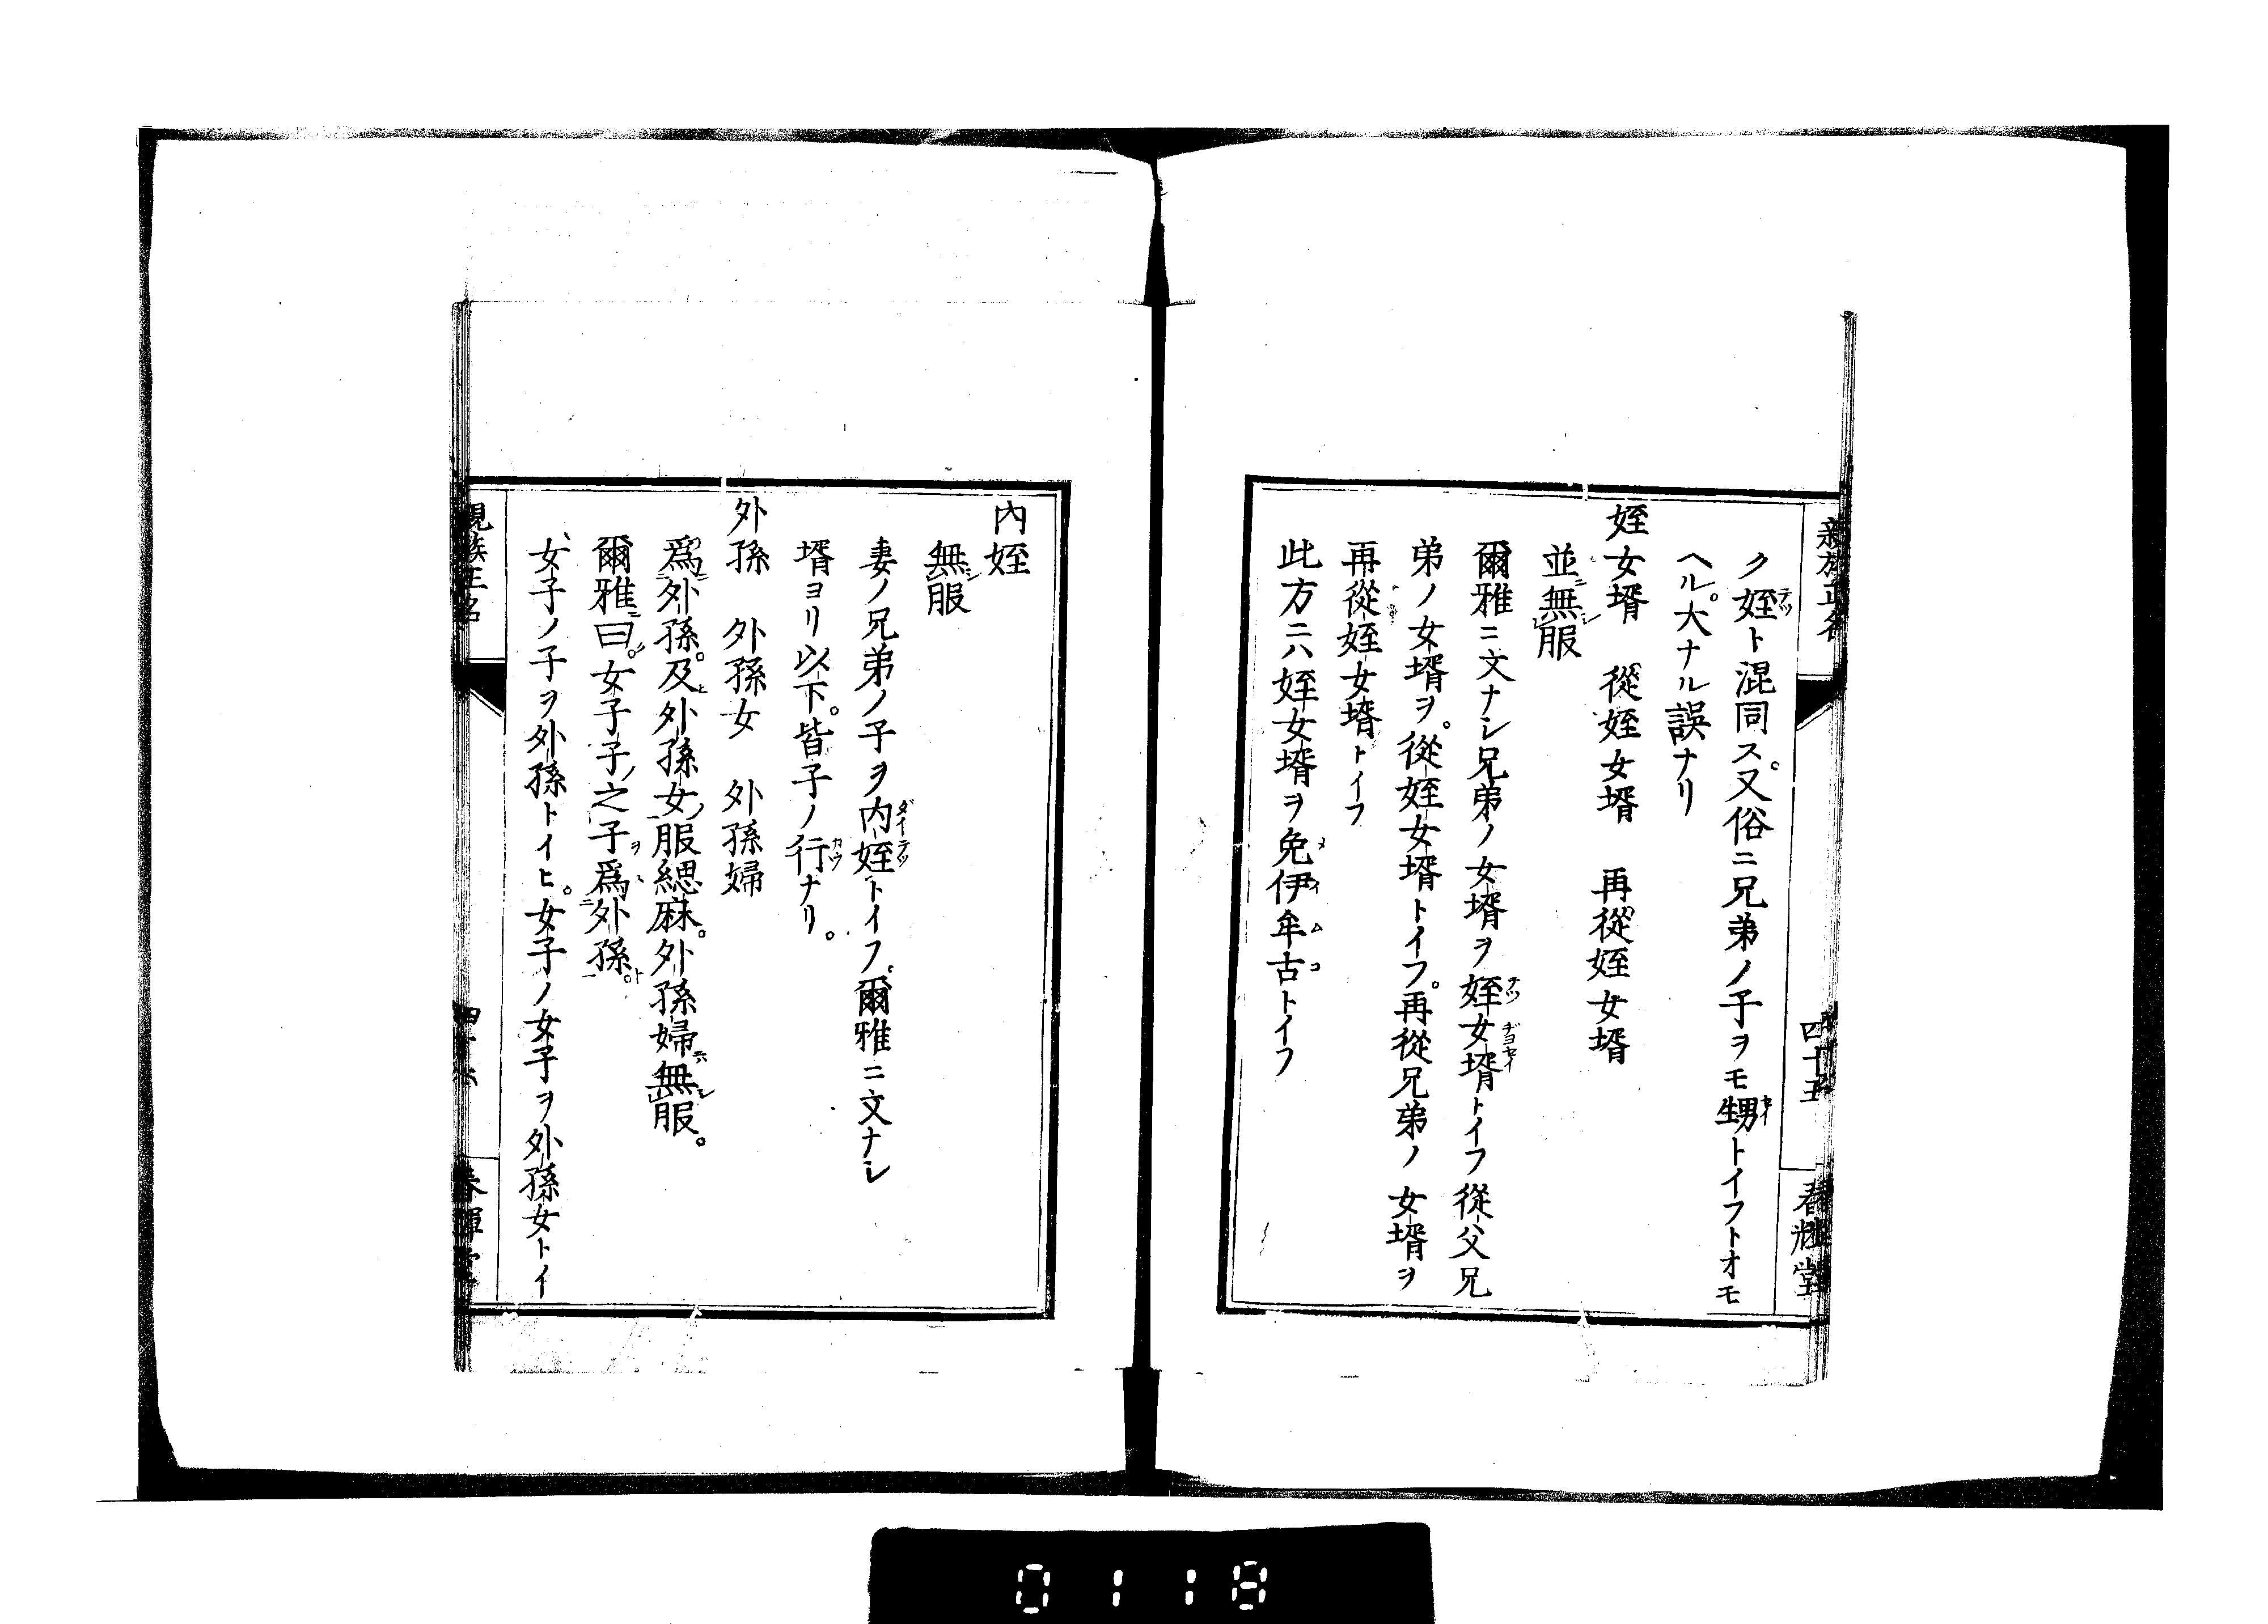 親族正名
四十五
春輝堂
ク姪ト混同ス。又俗ニ兄弟ノ子ヲモ甥トイフトオモ
ヘル。大ナル誤ナリ
姪女壻　從姪女壻　再從姪女壻
並無服
爾雅ニ文ナシ兄弟ノ女壻ヲ姪女壻トイフ從父兄
弟ノ女壻ヲ。從姪女壻トイフ。再從兄弟ノ女壻ヲ
再從姪女壻トイフ
此方ニハ姪女壻ヲ免伊牟古トイフ
內姪
無服
妻ノ兄弟ノ子ヲ內姪トイフ。爾雅ニ文ナシ
壻ヨリ以下。皆子ノ行ナリ。
外孫　外孫女　外孫婦
爲外孫。及外孫女服緦麻。外孫婦無服。
爾雅曰。女子子之子爲外孫。
女子ノ子ヲ外孫トイヒ。女子ノ女子ヲ外孫女トイ
親族正名
四十六
春輝堂
0118